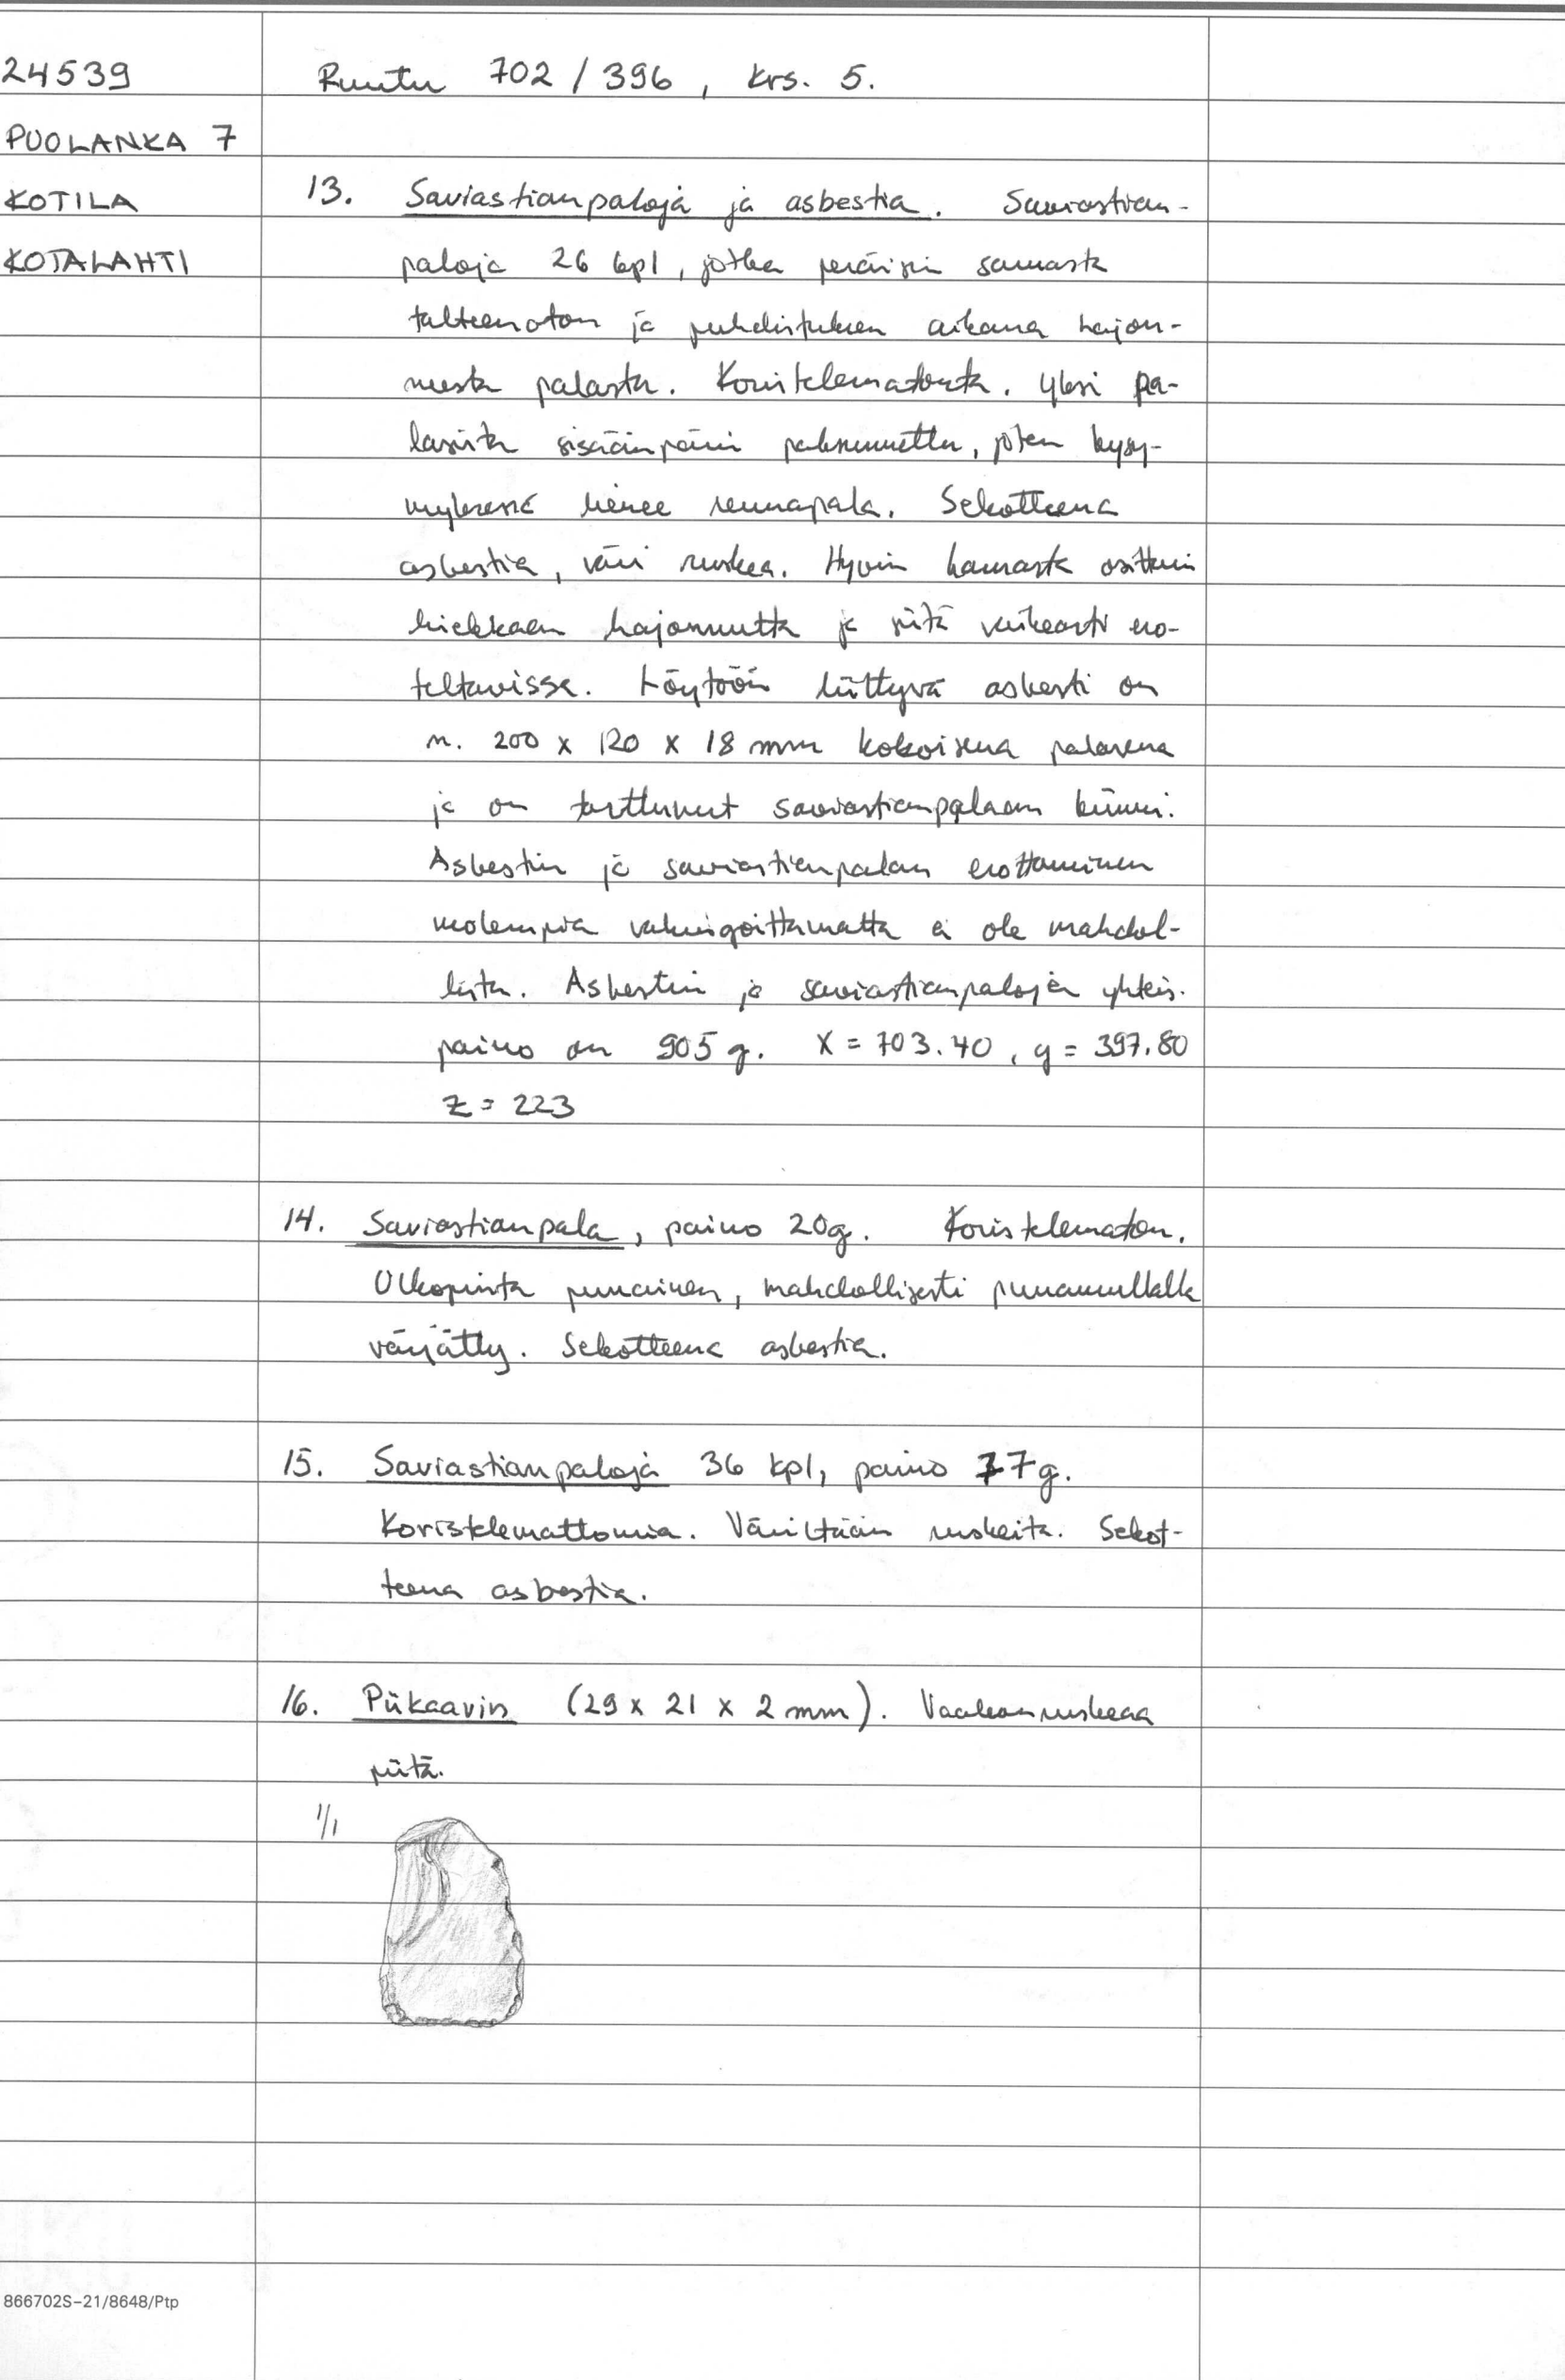 24539
PUOLANKA 7
KOTILA
KOTALAHTI
Ruutu 702 / 396 , krs. 5.
13. Saviastianpaloja ja asbestia. Saviastian-
paloja 26 kpl, jotka peräisin samasta
talteenoton ja puhdistuksen aikana hajon-
neesta palasta. Koristelematonta. Yksi pa-
lasista sisäänpäin paksunnettu, joten kysy-
myksessä lienee reunapala. Sekoitteena
asbestia, väri ruskea. Hyvin haurasta osittain
hiekkaan hajonnutta ja siitä vaikeasti ero-
teltavissa. Löytöön liittyvä asbesti on
n. 200 x 120 x 18 mm kokoisena palasena
ja on tarttunut saviastianpalaan kiinni.
Asbestin ja saviastianpalan erottaminen
molempia vahingoittamatta ei ole mahdol-
lista. Asbestin ja saviastianpalojen yhteis-
paino on 905 g. X = 703.40 , y = 397.80
Z = 223
14. Saviastianpala, paino 20g. Koristelematon.
Ulkopinta punainen, mahdollisesti punamullalla
värjätty. Sekoitteena asbestia.
15. Saviastianpaloja 36 kpl, paino 77g.
Koristelemattomia. Väriltään ruskeita. Sekoit-
teena asbestia.
16. Piikaavin (29 x 21 x 2 mm). Vaaleanruskeaa
piitä.
1/1
866702S-21/8648/Ptp